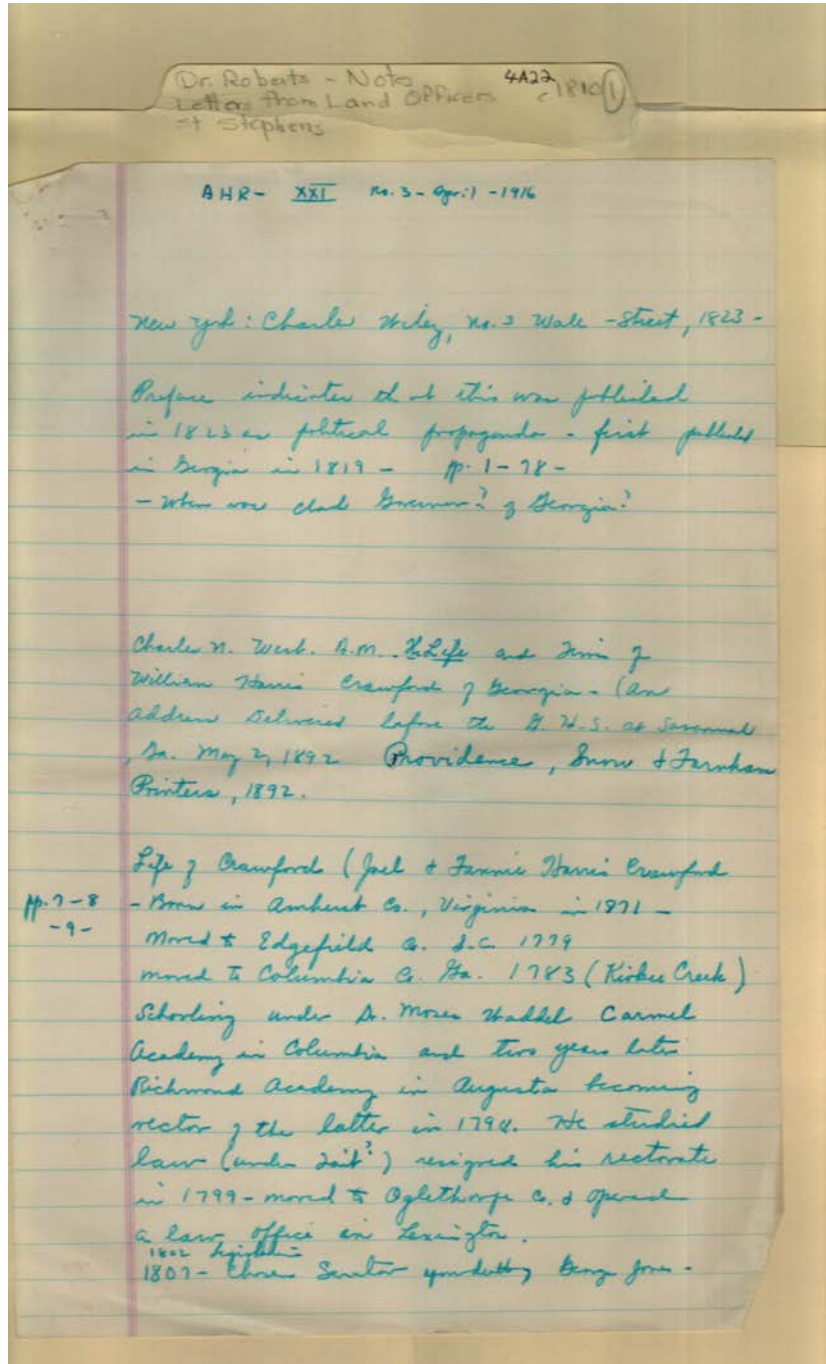 Dr. Roberts - Notes 4A22 c 1810 (1)
Letters from Land Officers
St Stephens
AHR - XXI no. 3 - April - 1916
New York: Charles Wiley, No. 3 Wall - Street, 1823 -
Preface indicates that this was published
in 1823 as political propaganda - first published
in Georgia in 1819 - pp. 1-78 -
- When was Clark Governor? of Georgia?
Charles N. West. A.M. Life and Times of
William Harris Crawford of Georgia - (an
address delivered before the G.H.S. at Savannah
, Ga. May 2, 1892 Providence, Snow & Farnham
Printers, 1892.
Life of Crawford (Joel & Fannie Harris Crawford
pp. 7-8
-9-
- Born in Amherst Co., Virginia in 1871 -
Moved to Edgefield Co. S.C. 1779
moved to Columbia Co. Ga. 1783 (Kiokee Creek)
Schooling under Dr. Moses Waddel Carmel
Academy in Columbia and two years later
Richmond Academy in Augusta becoming
rector of the latter in 1798. He studied
law (under Tait?) resigned his rectorate
in 1799 - moved to Oglethorpe Co. & opened
a law office in Lexington.
1802 Legislature
1807 - Chosen Senator George Jones -